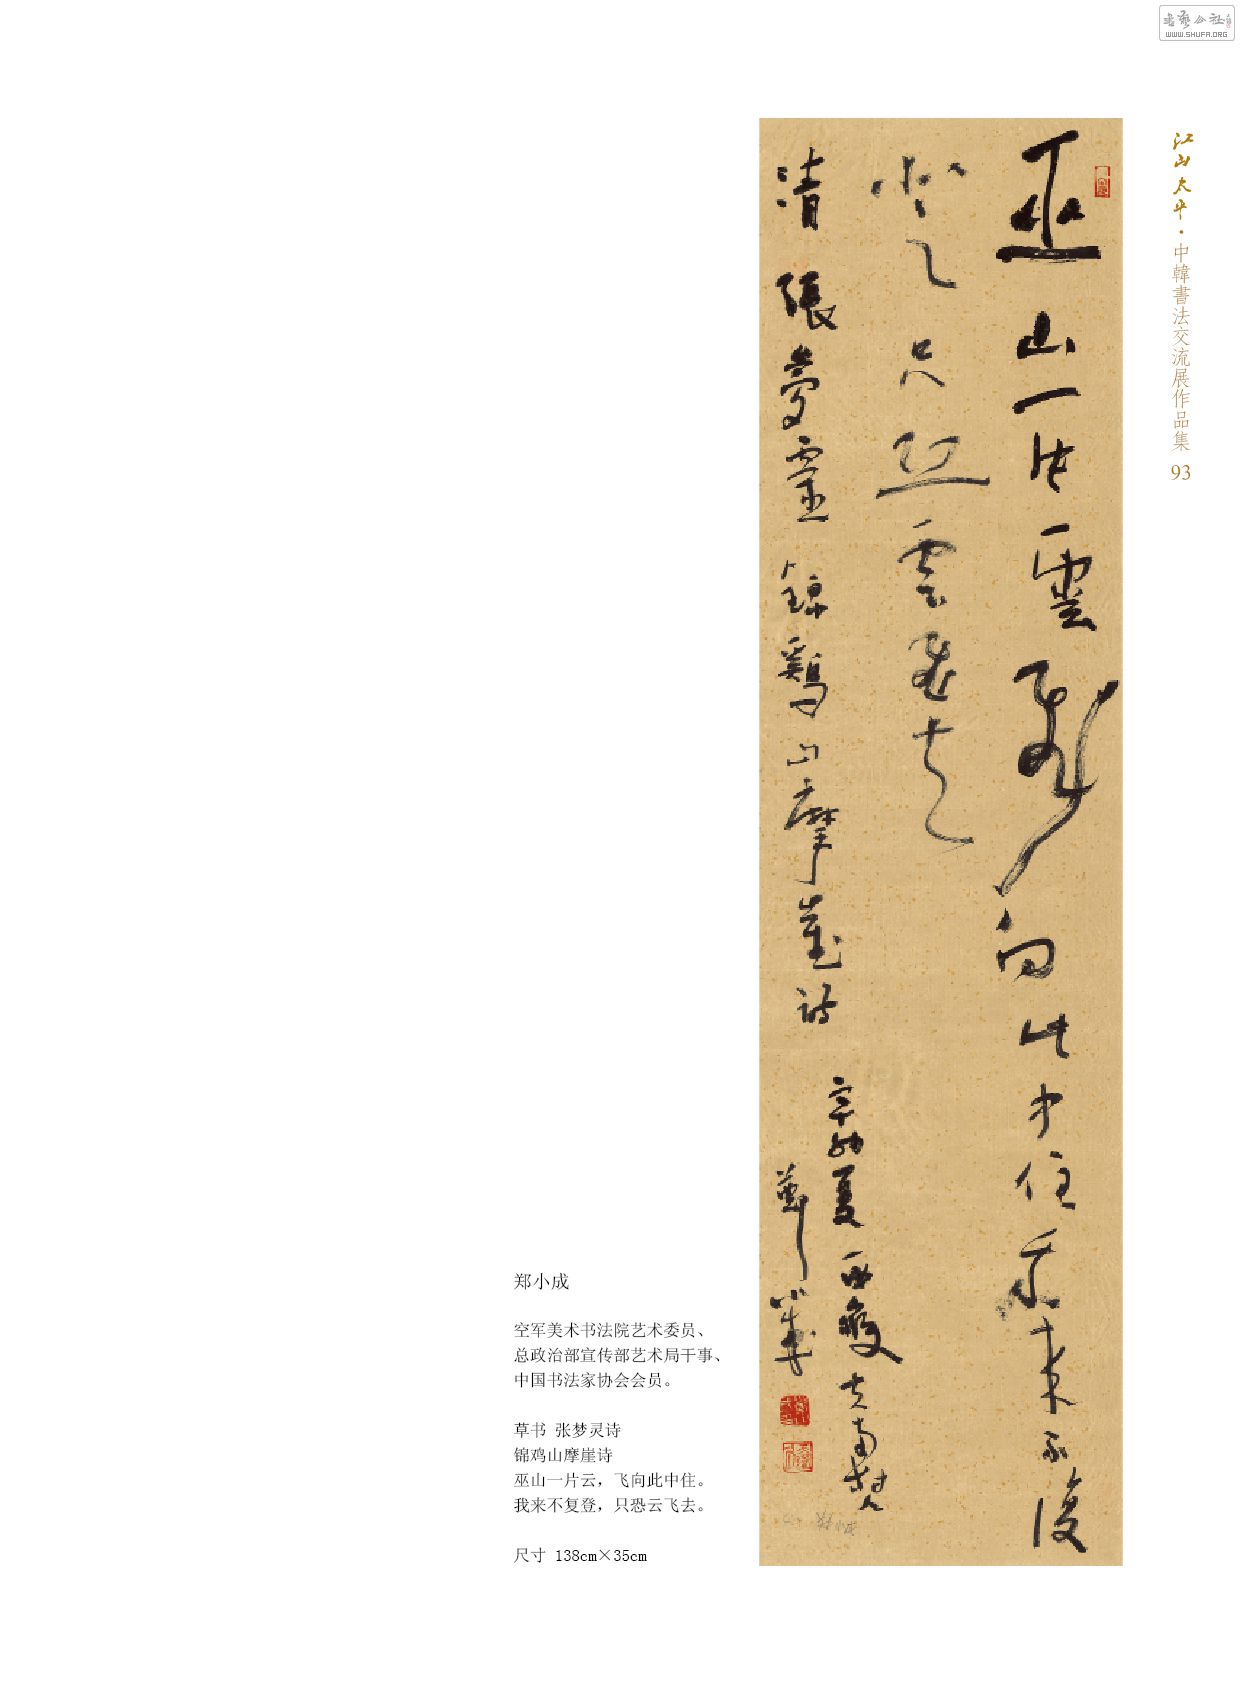 WWW.SHUFA.ORG
江山太平·中韓書法交流展作品集 93
巫山一片雲飛向此中住我來不復
登只恐雲飛去
清張夢靈錦鷄山摩崖詩
辛卯夏
鄭小成
郑小成
空军美术书法院艺术委员、
总政治部宣传部艺术局干事、
中国书法家协会会员。
草书 张梦灵诗
锦鸡山摩崖诗
巫山一片云，飞向此中住。
我来不复登，只恐云飞去。
尺寸 138cm×35cm